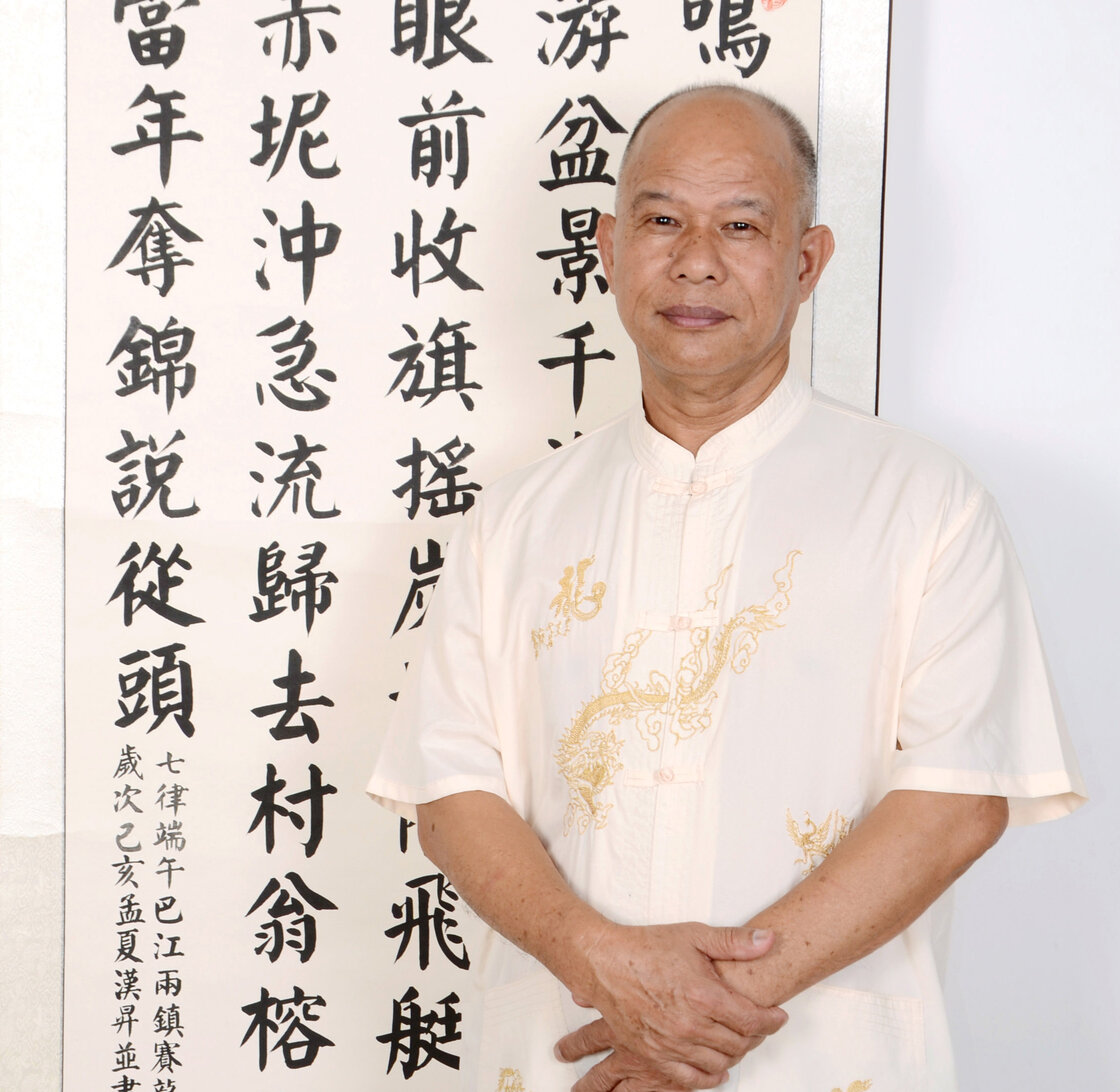 鳴
盆景千
眼前收旗搖
飛艇
赤坭沖急流歸去村翁榕
當年奪錦說從頭
七律端午巴江兩鎮賽龍
歲次己亥孟夏漢昇並書